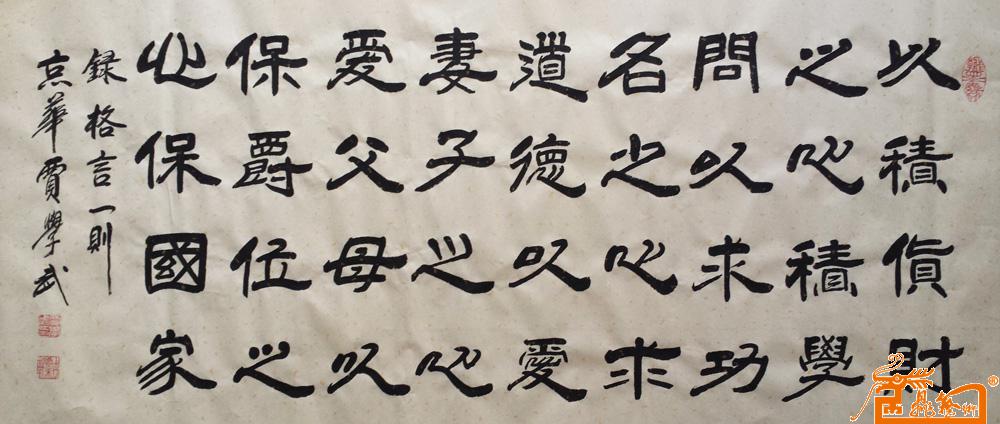 以積貨財
之心積學
問以求功
名之心求
道德以愛
妻子之心
愛父母以
保爵位之
心保國家
録格言一則
京華賈學武